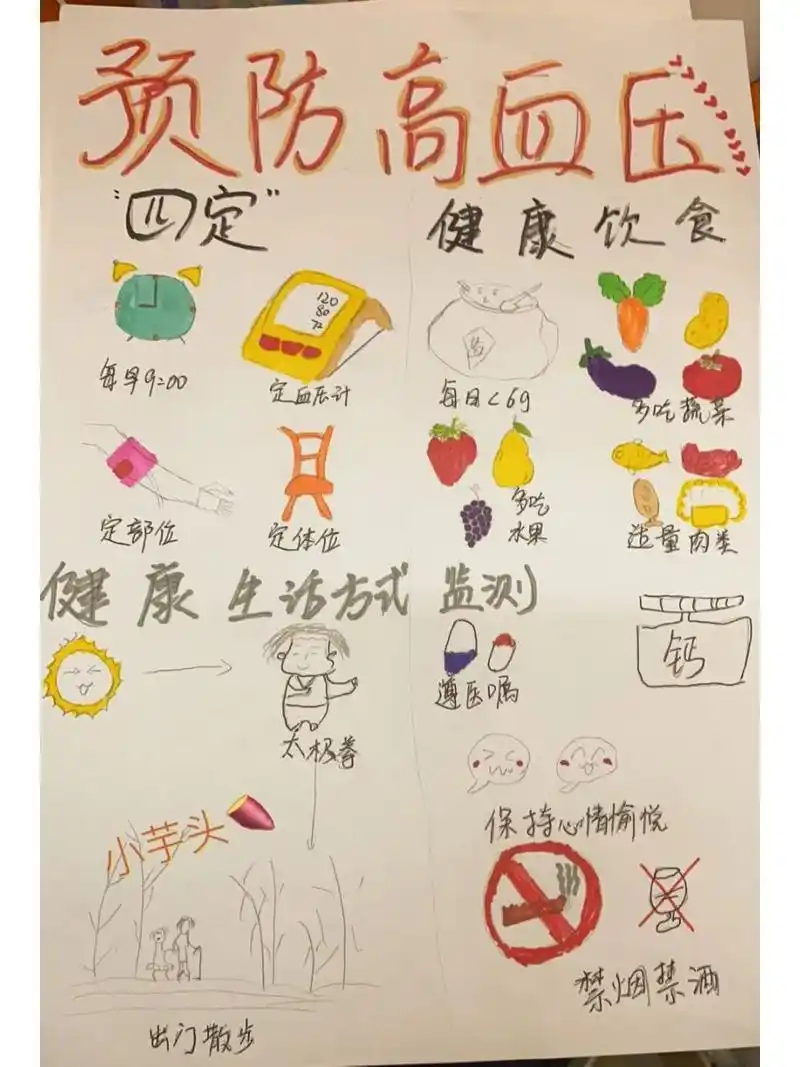 预防高血压
"四定"
健康饮食
每早9:00
120
80
72
定血压计
盐
每日<6g
多吃蔬菜
定部位
定体位
多吃
水果
适量肉类
健康生活方式
监测
遵医嘱
钙
太极拳
小芋头
保持心情愉悦
出门散步
禁烟禁酒